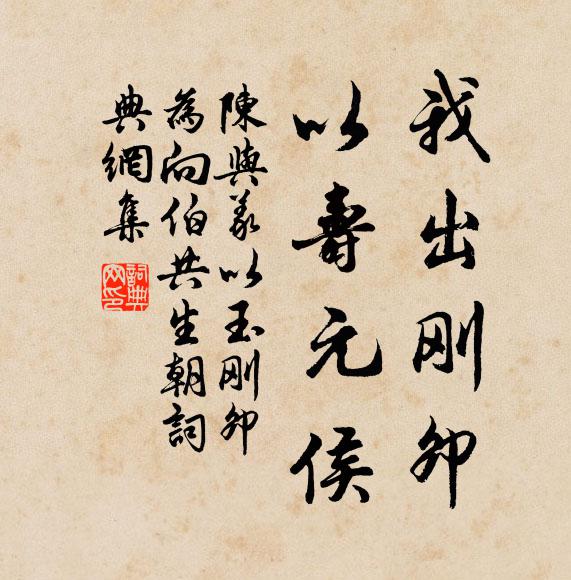 我出刚卯
以壽元侯
陳與義以玉刚卯
為向伯共生朝詞
典網集
詞典网印